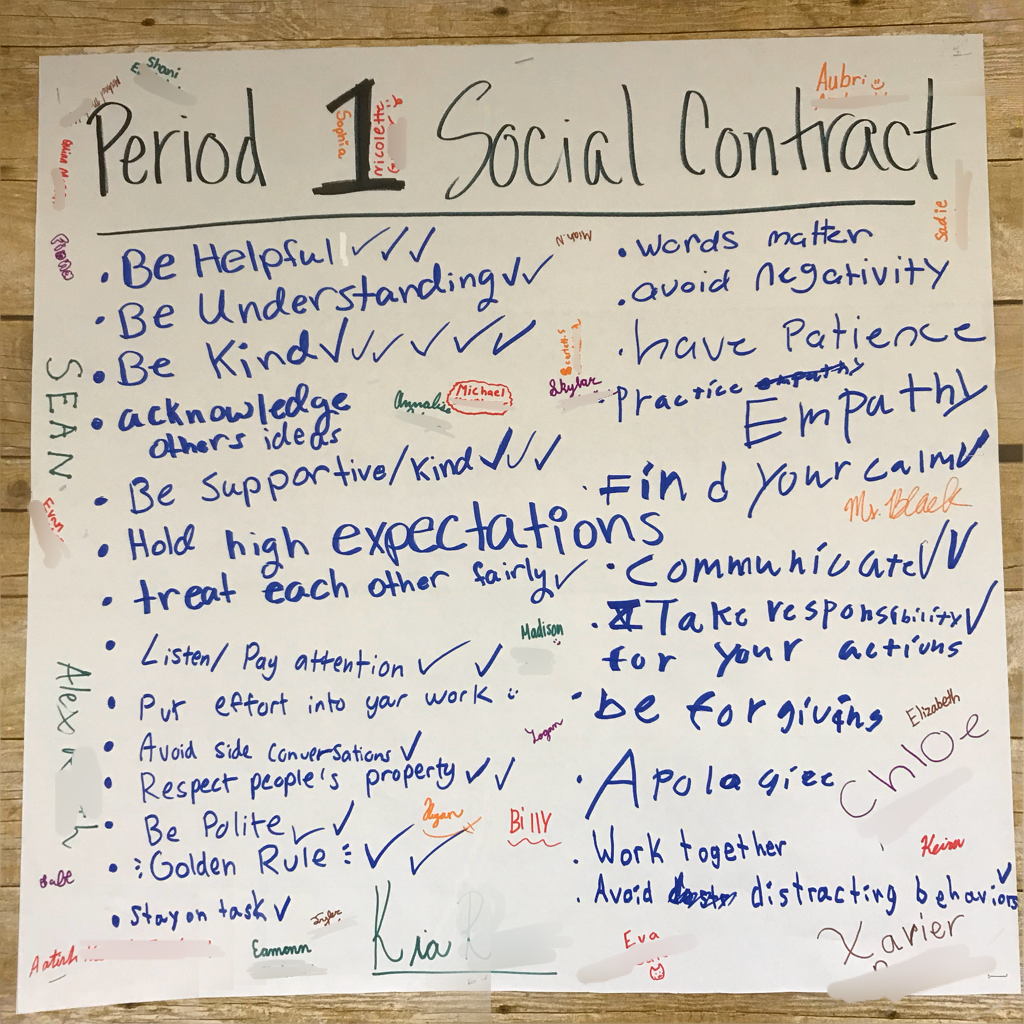 Shani
Aubri
Period 1 Social Contract
Sophia
Nicolette
Sadie
• Be Helpful ✓✓✓
• Be Understanding ✓✓
• Be Kind ✓✓✓✓✓✓
• acknowledge
others ideas
• Be Supportive/Kind ✓✓✓
• Hold high expectations
• treat each other fairly ✓
• Listen/ Pay attention ✓ ✓
• Put effort into your work
• Avoid side conversations ✓
• Respect people's property ✓✓
• Be Polite ✓✓
• Golden Rule ✓ ✓
• Stay on task ✓
• words matter
• avoid negativity
• have Patience
• Practice empathy
Empathy
• Find your calm ✓
• Communicate ✓✓
• Take responsibility ✓
for your actions
• be forgiving
• Apologize
• Work together
• Avoid distracting behaviors ✓
SEAN
Evan
Annalis
Michael
Skylar
Ms. Black
Madison
Logan
Elizabeth
Chloe
Billy
Keira
Alex
Gabe
Eamonn
Kia R
Eva
Xavier
Aatish